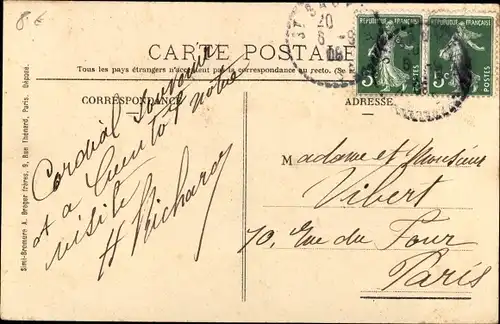 8 €
20
6 - 8
08
RÉPUBLIQUE FRANÇAISE
5c
POSTES
5c
POSTES
CARTE POSTALE
Tous les pays étrangers n'acceptent pas la correspondance au recto. (Se
CORRESPONDANCE
ADRESSE
Cordial Souvenir
et a bientôt notre
visite
H Richard
Madame et Monsieur
Vibert
70, Rue du Four
Paris
Simi-Bromure A. Breger frères, 9, Rue Thénard, Paris. Déposé.